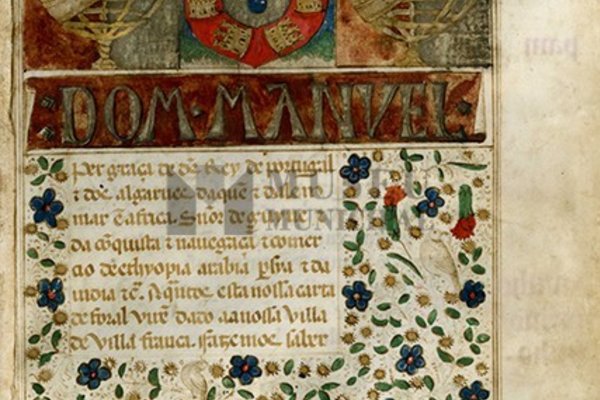 DOM·MANVEL·
Per graça de ds̃ Rey de portugal
τ dos algarues daquẽ τ dalẽ no
mar ẽ africa. Sñor de guinee τ
da cõquista τ nauegaçã τ comer
cio de ethyopia arabia psya τ da
india τc̃. A quãtos esta nossa carta
de foral virẽ dado aa nossa villa
de villa franca. fazemos saber
MUSEU
MUNICIPAL